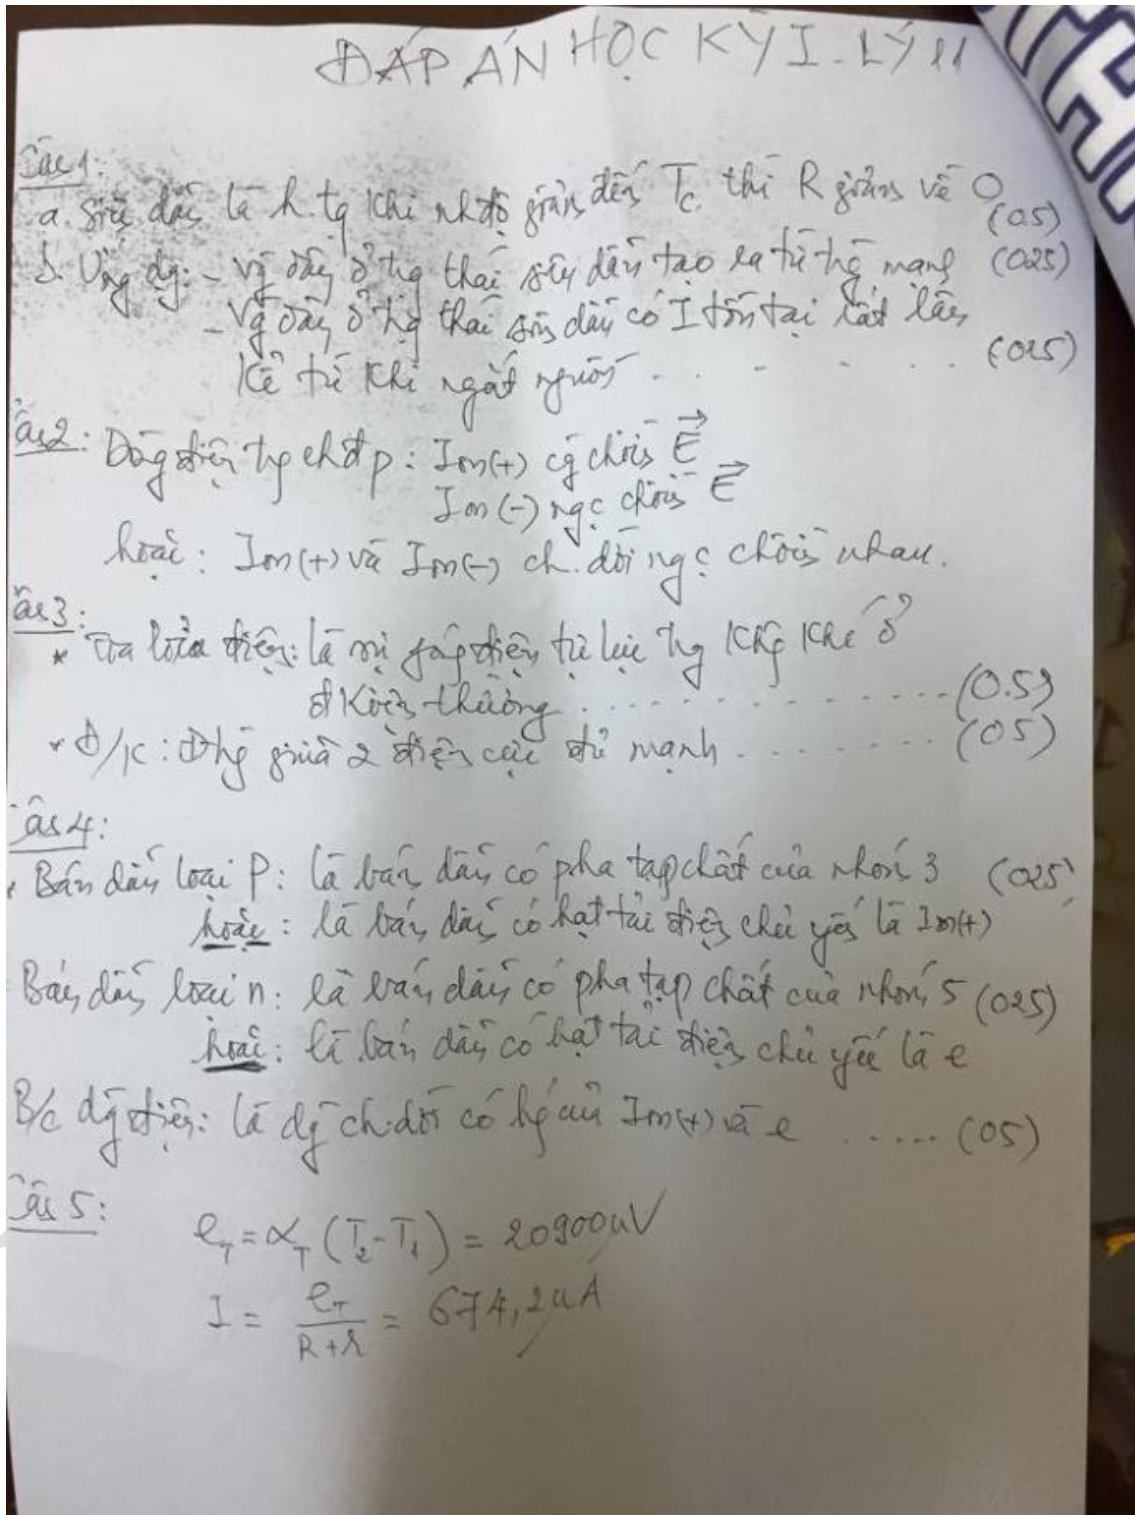 ĐÁP ÁN HỌC KỲ I. LÝ 11
Câu 1:
a. Siêu dẫn là h.tg khi nh độ giảm đến Tc thì R giảm về 0 (0.5)
b. Ứng dg: - Vg dây ở tg thái siêu dẫn tạo ra từ trg mạnh (0.25)
- Vg dây ở tg thái siêu dẫn có I tồn tại rất lâu
kể từ khi ngắt nguồn . . . . . . (0.25)
Câu 2: Dòng điện tg chất đ p: Ion(+) cg chiều E⃗
Ion(-) ngc chiều E⃗
hoặc: Ion(+) và Ion(-) ch. dời ngc chiều nhau.
Câu 3:
* Tia lửa điện: là sự phóng điện tự lực tg khg khí ở
đ kiện thường . . . . . . . . . . (0.5)
* Đ/K: Đ trg giữa 2 điện cực đủ mạnh . . . . . . . (0.5)
Câu 4:
. Bán dẫn loại p: là bán dẫn có pha tạp chất của nhóm 3 (0.25)
hoặc: là bán dẫn có hạt tải điện chủ yếu là Ion(+)
Bán dẫn loại n: là bán dẫn có pha tạp chất của nhóm 5 (0.25)
hoặc: là bán dẫn có hạt tải điện chủ yếu là e
B/c dg điện: là dg ch. dời có hg của Ion(+) và e ...... (0.5)
Câu 5:
e_T = α_T (T₂ - T₁) = 20900μV
I = e_T / (R + r) = 674,2μA